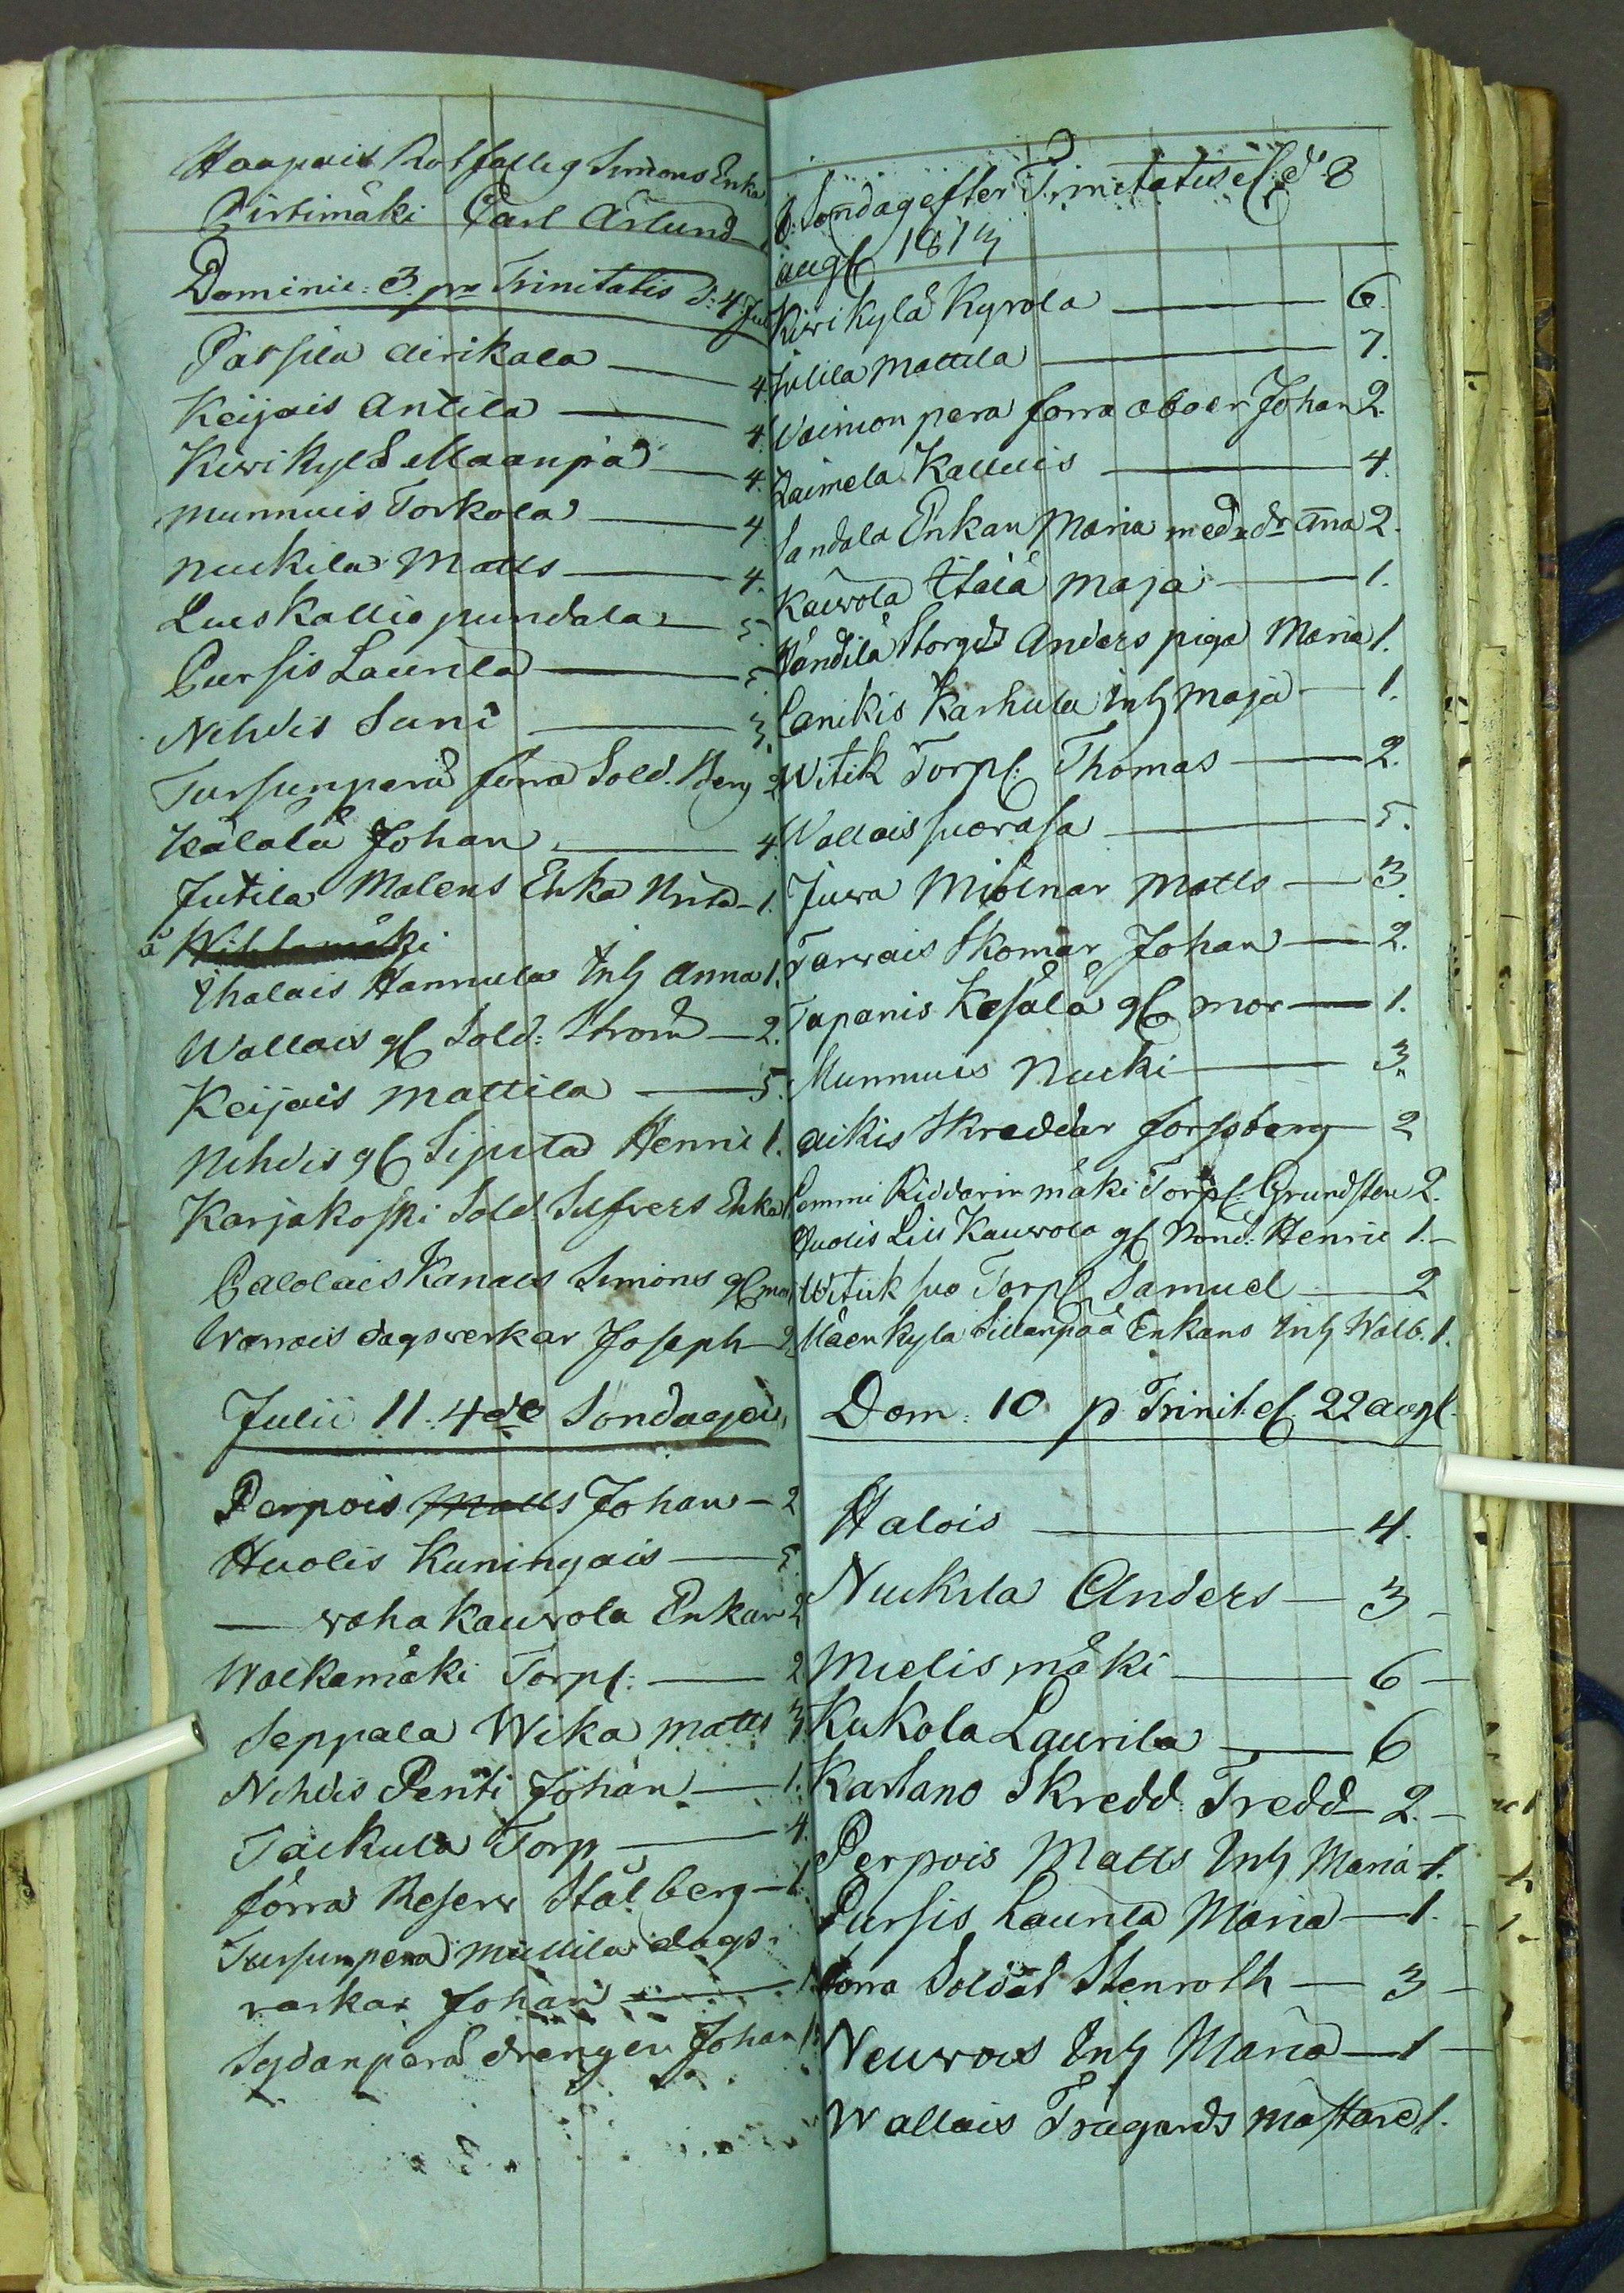 Haapais Rotfallig Simons Enka
Pirtimäki Carl Arlund
Dominic: 3. pa Trinitatis d: 4. Jul
Patsila airikala — 4.
Keijais Antila — 4.
Kiwikylä Maanpä — 4.
Munnuis Torkola — 4
nuckila Matts — 4.
Lues Kallio pundala — 5
Pursis Laurila — 5
Nihdis Suni — 3.
Tursunperä förra Sold. Berg 2
Kälälä Johan — 4.
Jutila Malens Enka — 1.
ä
Ihalais Hannula Inh Anna 1.
Wallais gl Sold: Ström — 2.
Keijais Mattila — 5.
Nihdis gl Henric 1.
Karjakoski Sold. Silfvers Enka
Palolais Kanais Simons gl mor
Wanais dagsverkar Joseph — 2
Julii 11. 4de Söndagen
Perpois Matts Johan — 2
Huolis Kuningais — 5
— waha Kauwola Enkan 2
Walkamäki Torp: — 2
Seppala Wika Matts 3.
Nihdis Penti Johan — 1.
Taikula Torp — 4.
förra Reserv Stålberg — 1.
Tursunpera Mullila dags-
varkar Johan — 1
Sydanperä drengen Johan 1.
8. Söndag efter Trinitatis el. d. 8
augl 1813
Kiwikylä Kyrola — 6.
Julila Mattila — 7.
Vaimonpera forra aboer Johan 2.
Laimela Kalluis — 4.
Sandala Enkan Maria med dr Ana 2.
Kauwola Itaiä Maja — 1.
Händilä Storgds Anders piga Maria 1.
Canikis Karhula Inh Maja — 1.
Witik Torpl: Thomas — 2.
Wallais suorasa — 5.
Juwa Miölnar Matts — 3.
Tarwais Skomar Johan — 2.
Tapanis Kesälä gl mor — 1.
Munnuis Nucki — 3.
aikis Skreddar forssberg — 2
Lemmi Riddarinmäki Torpl: Grundsten 2.
Huolis Lill Kauwola gl Henric 1.-
Wituk suo Torpl Samuel — 2
Mäenkyla Sillanpää Enkans Inh Walb. 1.
Dom: 10 p Trinit. el 22 augl
Halois — 4.
Nuckila Anders — 3 -
Mielismäki — 6 -
Kukola Laurila — 6
Karlano Skredd. Tredd — 2. -
Perpois Matts Inh Maria — 1.
Pursis Laurila Maria — 1. -
förra Soldat Stenroth — 3 -
Neuwois Inh Maria — 1 -
Wallais Trägards mästare 1.